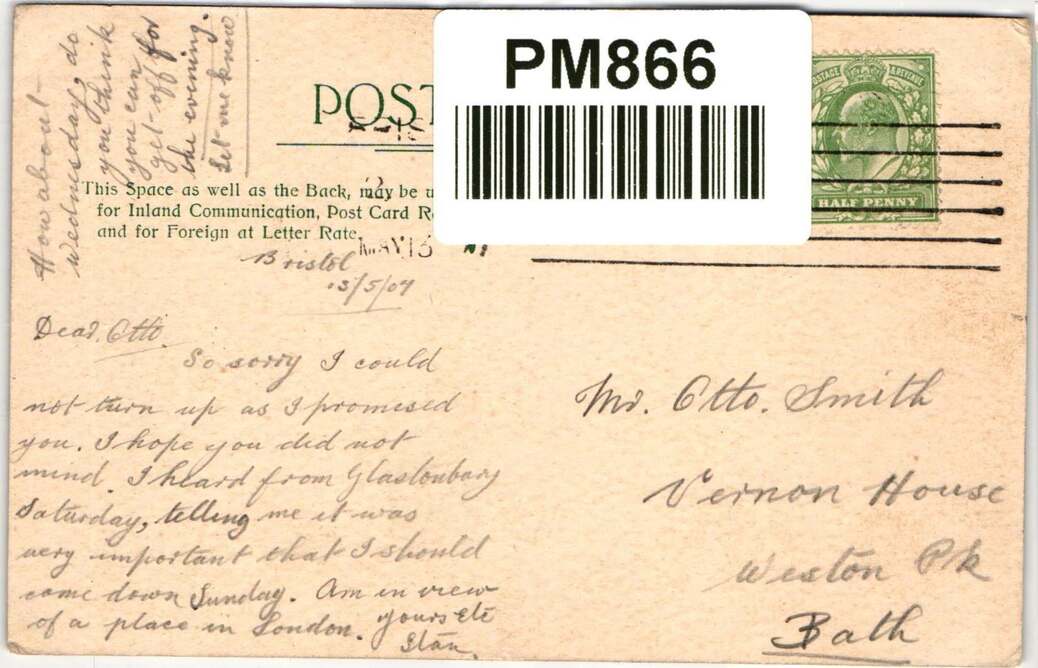 How about
Wednesday, do
you think
you can
get off for
the evening.
Let me know
POST
PM866
POSTAGE & REVENUE
HALF PENNY
This Space as well as the Back, may be u
for Inland Communication, Post Card R
and for Foreign at Letter Rate.
MAY 13
Bristol
13/5/07
Dear Otto.
So sorry I could
not turn up as I promised
you. I hope you did not
mind. I heard from Glastonbury
Saturday, telling me it was
very important that I should
come down Sunday. Am in view
of a place in London. yours etc
Stan.
Mr. Otto. Smith
Vernon House
Weston Pk
Bath